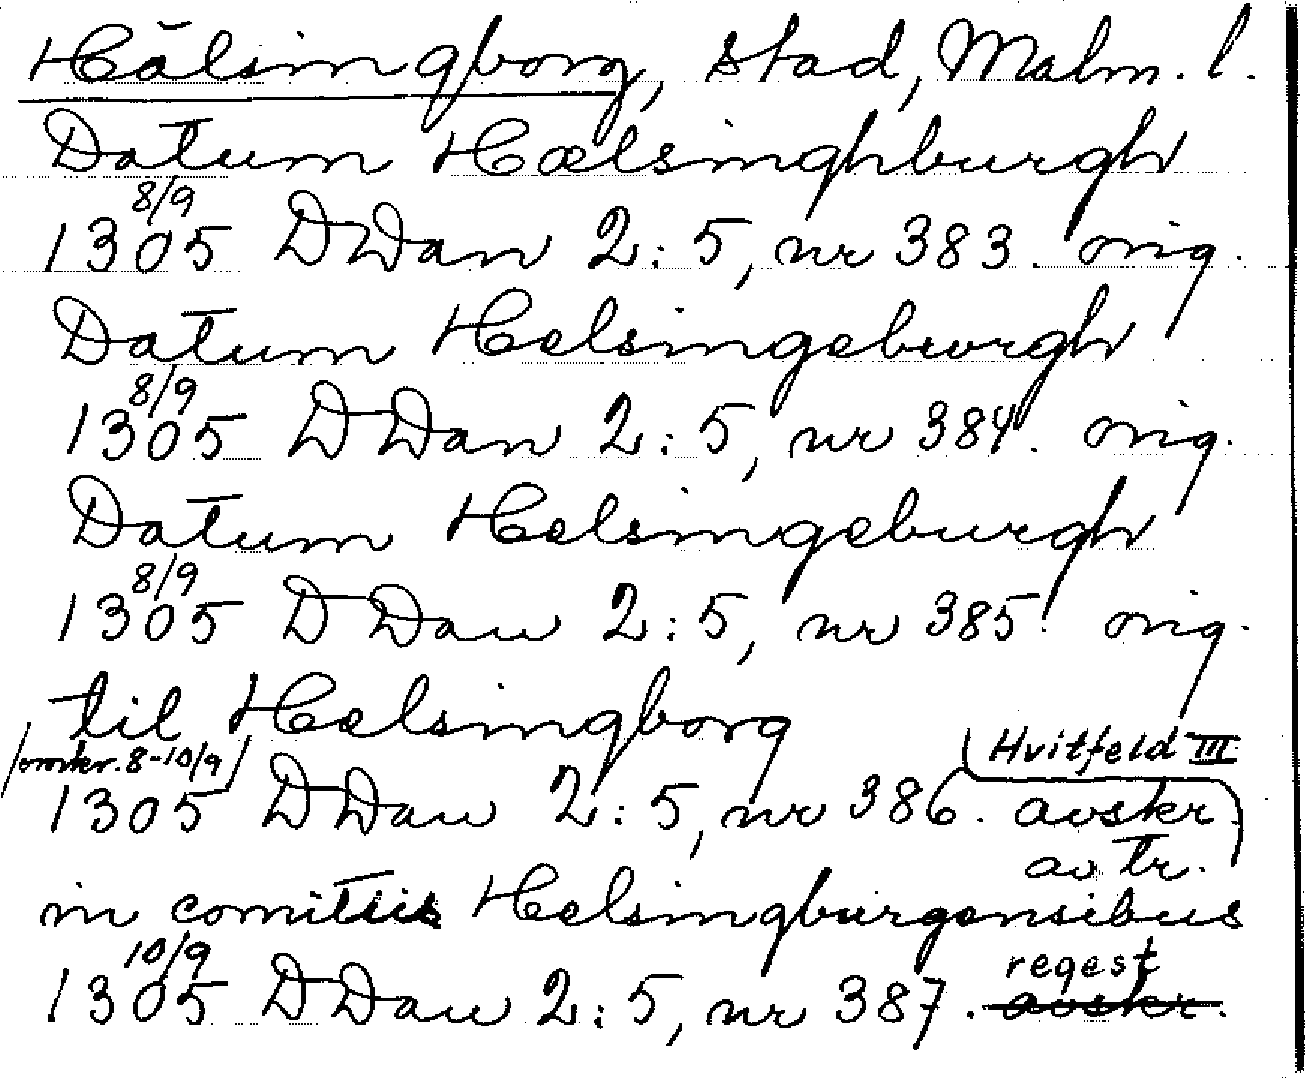 Hälsingborg, stad, Malm. l.
Datum Hælsinghburgh
8/9
1305 DDan 2:5, nr 383. orig.
Datum Helsingeburgh
8/9
1305 DDan 2:5, nr 384. orig.
Datum Helsingeburgh
8/9
1305 DDan 2:5, nr 385. orig.
til Helsingborg
/omkr. 8-10/9/ Hvitfeld III
1305 DDan 2:5, nr 386. avskr.
av tr.
in comitiis Helsingburgensibus
10/9 regest
1305 DDan 2:5, nr 387. avskr.